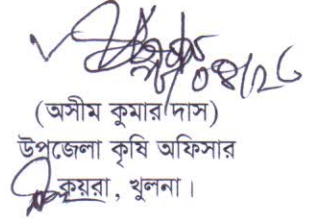 (অসীম কুমার দাস)
উপজেলা কৃষি অফিসার
কয়রা, খুলনা।